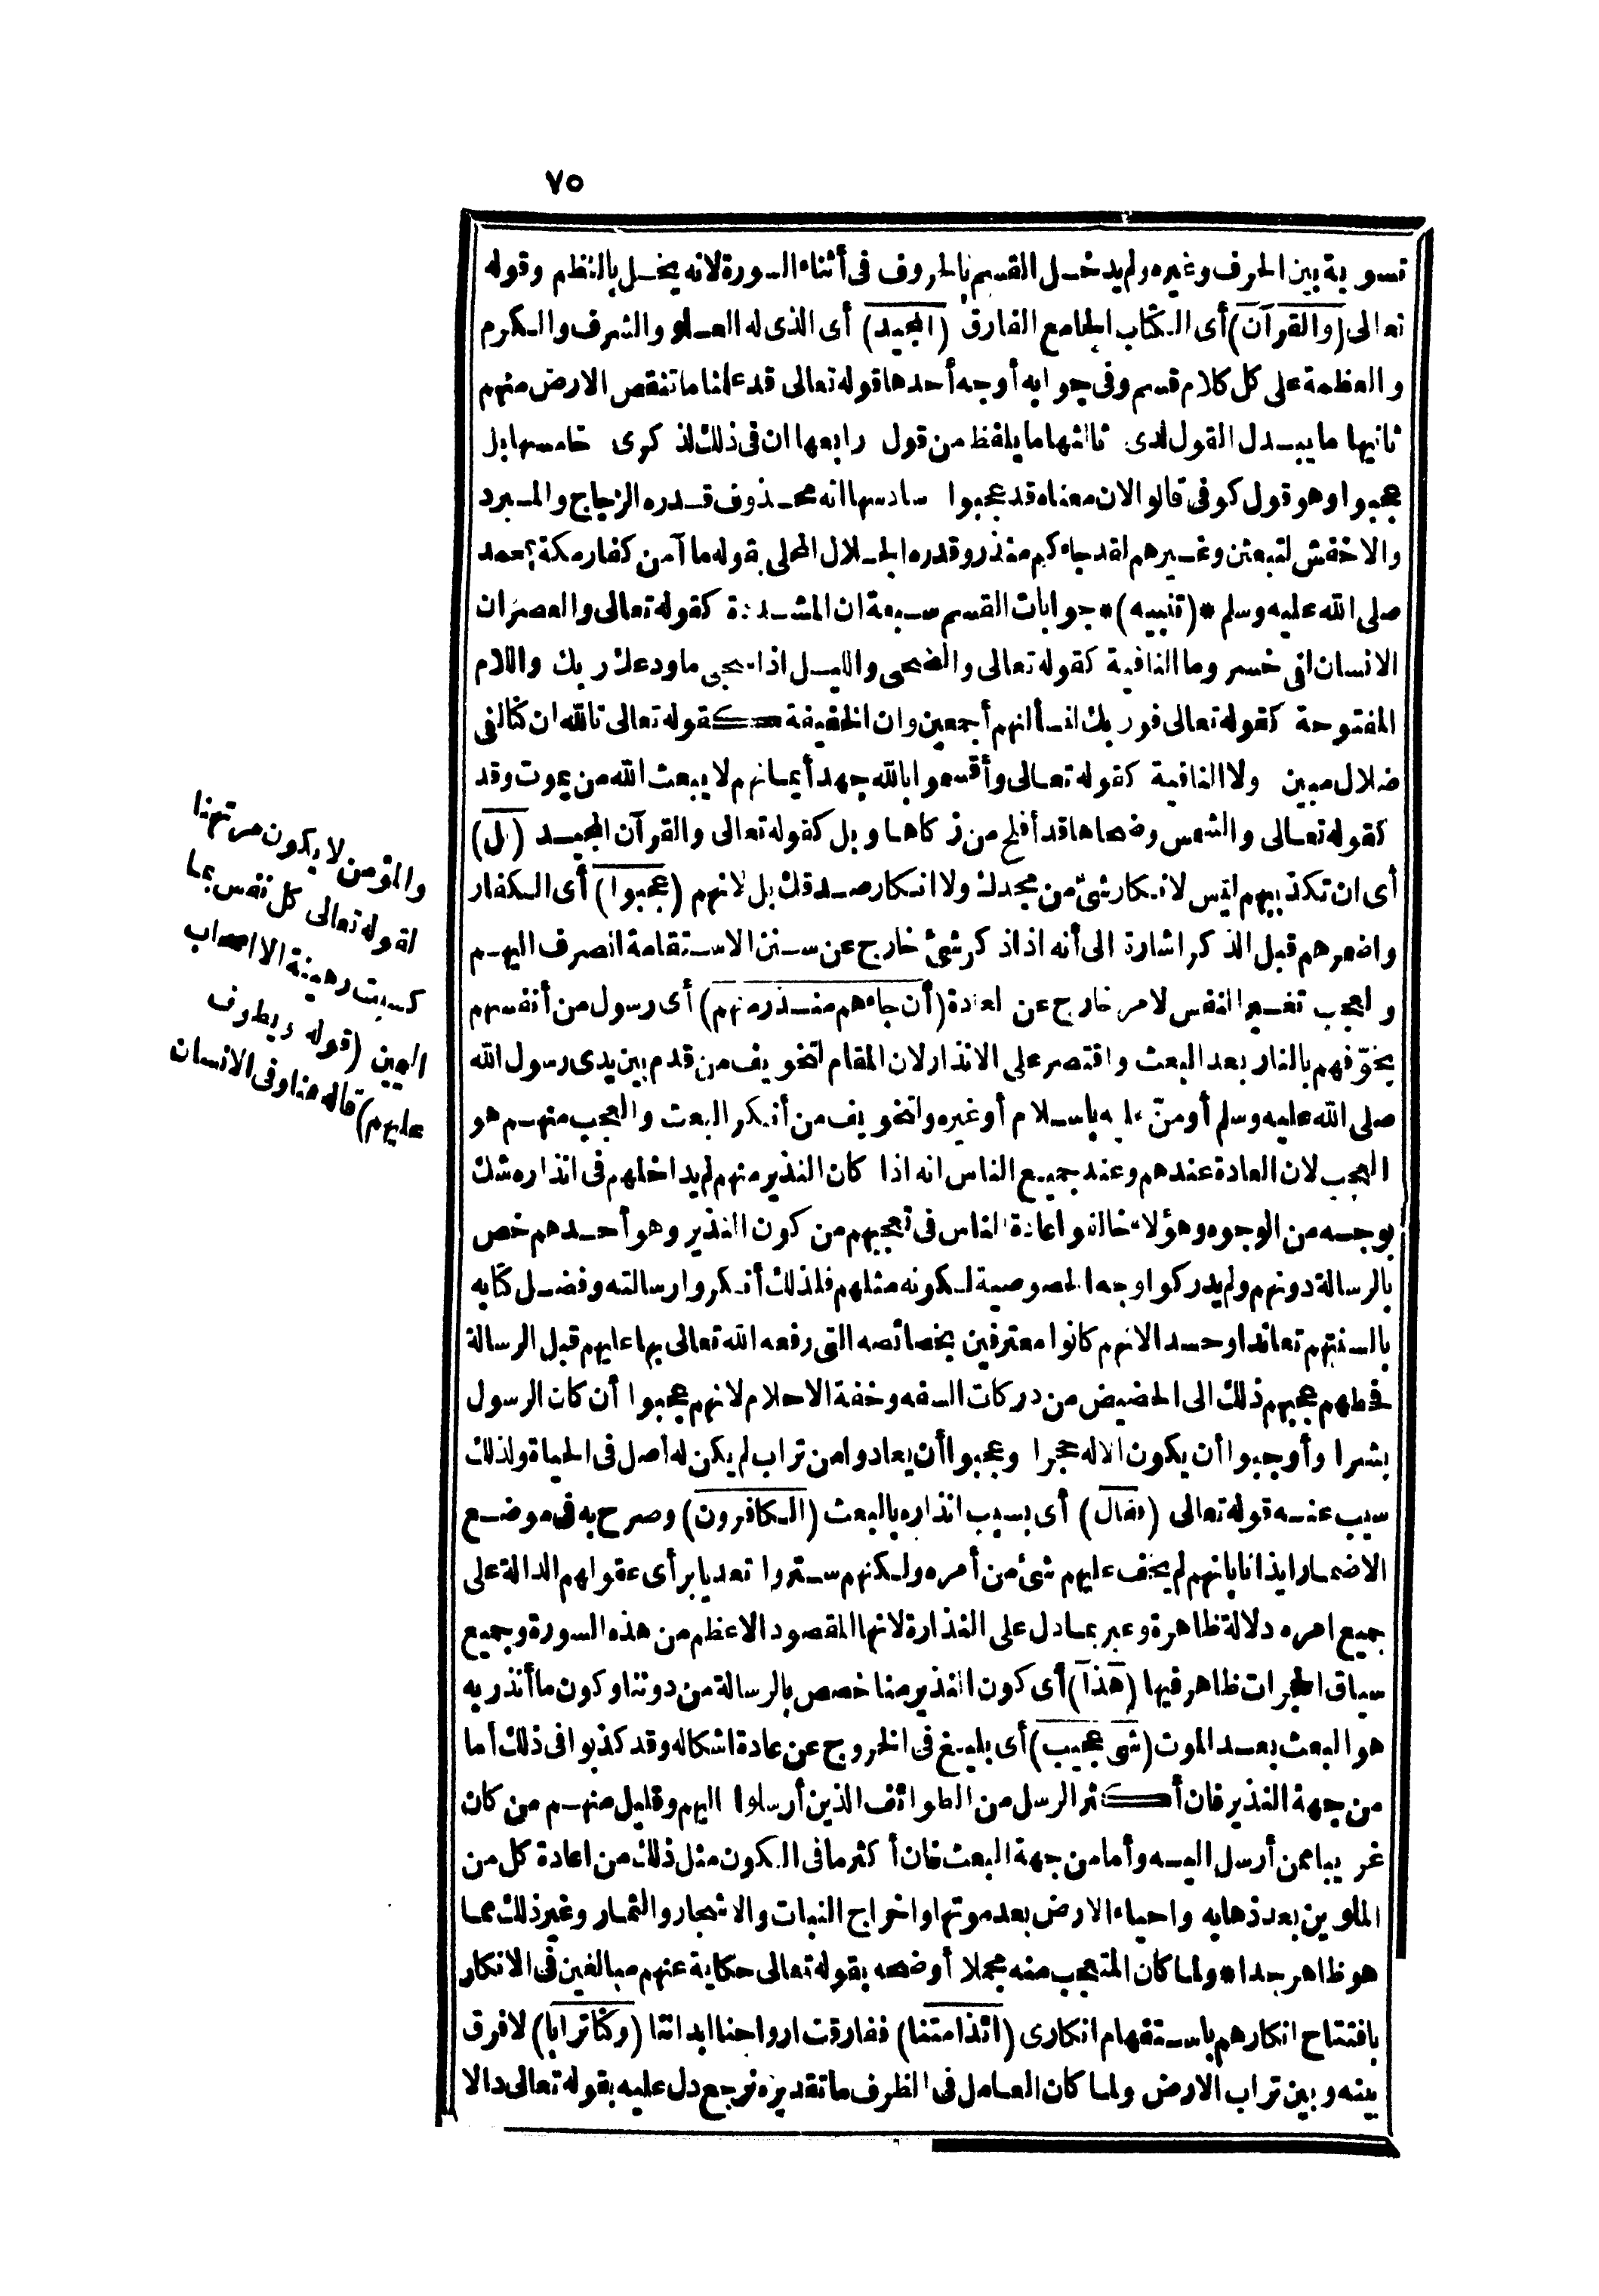 ٧٥
تسوية بين الحرف وغيره ولم يدخل القسم بالحروف فى أثناء السورة لانه يخل بالنظم وقوله
تعالى (والقرآن) أى الكتاب الجامع الفارق (المجيد) أى الذى له العلو والشرف والكرم
والعظمة على كل كلام قسم وفى جوابه أوجه أحدها قوله تعالى قد علمنا ما تنقص الارض منهم
ثانيها ما يبدل القول لدى ثالثها ما يلفظ من قول رابعها ان فى ذلك لذكرى خامسها بل
عجبوا وهو قول كوفى قالوا لان معناه قد عجبوا سادسها انه محذوف قدره الزجاج والمبرد
والاخفش لتبعثن وغيرهم لقد جاءكم منذر وقدره الجلال المحلى بقوله ما آمن كفار مكة بمحمد
صلى الله عليه وسلم * (تنبيه) * جوابات القسم سبعة ان المشددة كقوله تعالى والعصر ان
الانسان لفى خسر وما النافية كقوله تعالى والضحى والليل اذا سجى ما ودعك ربك واللام
المفتوحة كقوله تعالى فوربك لنسألنهم أجمعين وان الخفيفة كقوله تعالى تالله ان كنا لفى
ضلال مبين ولا النافية كقوله تعالى وأقسموا بالله جهد أيمانهم لا يبعث الله من يموت وقد
كقوله تعالى والشمس وضحاها قد أفلح من زكاها وبل كقوله تعالى والقرآن المجيد (بل)
أى ان تكذيبهم ليس لانكار شئ من مجدك ولا انكار صدقك بل لانهم (عجبوا) أى الكفار
واضمرهم قبل الذكر اشارة الى أنه اذا ذكر شئ خارج عن سنن الاستقامة انصرف اليهم
والعجب تغير النفس لامر خارج عن العادة (أن جاءهم منذر منهم) أى رسول من أنفسهم
يخوّفهم بالنار بعد البعث واقتصر على الانذار لان المقام لتخويف من قدم بين يدى رسول الله
صلى الله عليه وسلم أو منّ عليه باسلام أو غيره ولتخويف من أنكر البعث والعجب منهم هو
العجب لان العادة عندهم وعند جميع الناس انه اذا كان النذير منهم لم يداخلهم فى انذاره شك
بوجه من الوجوه وهؤلاء خالفوا عادة الناس فى تعجبهم من كون النذير وهو أحدهم خص
بالرسالة دونهم ولم يدركوا وجه الخصوصية لكونه مثلهم فلذلك أنكروا رسالته وفضل كتابه
بالسنتهم تعاندا وحسدا لانهم كانوا معترفين بخصائصه التى رفعه الله تعالى بها عليهم قبل الرسالة
فحطهم عجبهم ذلك الى الحضيض من دركات السفه وخفة الاحلام لانهم عجبوا أن كان الرسول
بشرا وأوجبوا أن يكون الاله حجرا وعجبوا أن يعادوا من تراب لم يكن له أصل فى الحياة ولذلك
سبب عنه قوله تعالى (فقال) أى بسبب انذاره بالبعث (الكافرون) وصرح به فى موضع
الاضمار ايذانا بانهم لم يخف عليهم شئ من أمره ولكنهم ستروا تعديا برأى عقولهم الدالة على
جميع امره دلالة ظاهرة وعبر بما دل على النذارة لانها المقصود الاعظم من هذه السورة وجميع
سياق الحجرات ظاهر فيها (هذا) أى كون النذير منا خصص بالرسالة من دوننا وكون ما أنذر به
هو البعث بعد الموت (شئ عجيب) أى بليغ فى الخروج عن عادة اشكاله وقد كذبوا فى ذلك أما
من جهة النذير فان أكثر الرسل من الطوائف الذين أرسلوا اليهم وقليل منهم من كان
غريبا ممن أرسل اليه وأما من جهة البعث فان أكثر ما فى الكون مثل ذلك من اعادة كل من
الملوين بعد ذهابه واحياء الارض بعد موتها واخراج النبات والاشجار والثمار وغير ذلك مما
هو ظاهر جدا * ولما كان المتعجب منه مجملا أوضحه بقوله تعالى حكاية عنهم مبالغين فى الانكار
بافتتاح انكارهم باستفهام انكارى (ائذا متنا) ففارقت ارواحنا ابداننا (وكنا ترابا) لا فرق
بينه وبين تراب الارض ولما كان العامل فى الظرف ما تقديره نرجع دل عليه بقوله تعالى دالا
والمؤمن لا يكون مرتهنا
لقوله تعالى كل نفس بما
كسبت رهينة الا اصحاب
اليمين (قوله ويطوف
عليهم) قاله هنا وفى الانسان